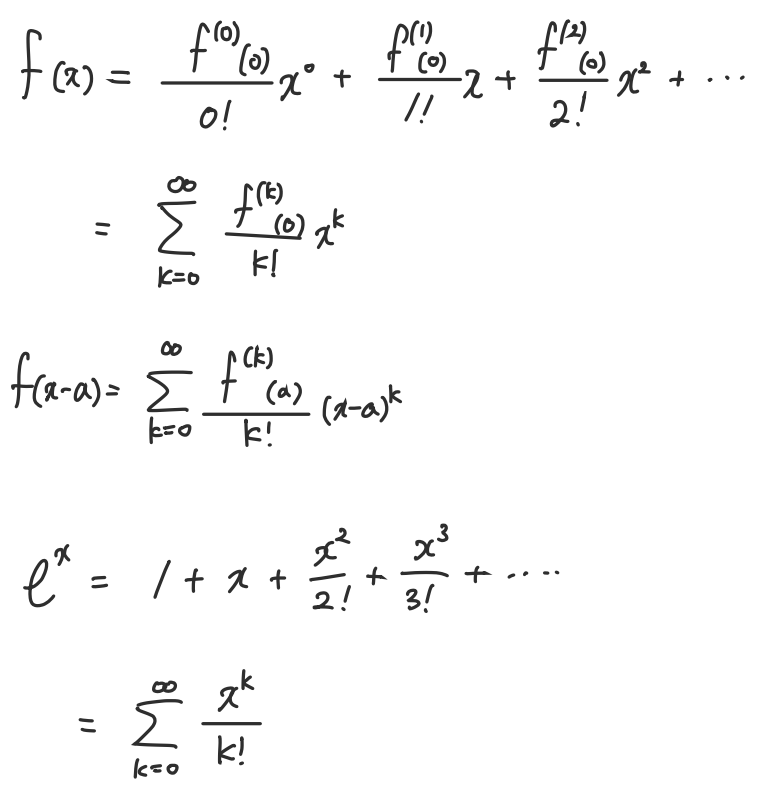 f(x) = \frac{f^{(0)}(0)}{0!} x^0 + \frac{f^{(1)}(0)}{1!} x + \frac{f^{(2)}(0)}{2!} x^2 + \cdots
= \sum_{k=0}^{\infty} \frac{f^{(k)}(0)}{k!} x^k
f(x-a) = \sum_{k=0}^{\infty} \frac{f^{(k)}(a)}{k!} (x-a)^k
e^x = 1 + x + \frac{x^2}{2!} + \frac{x^3}{3!} + \cdots
= \sum_{k=0}^{\infty} \frac{x^k}{k!}